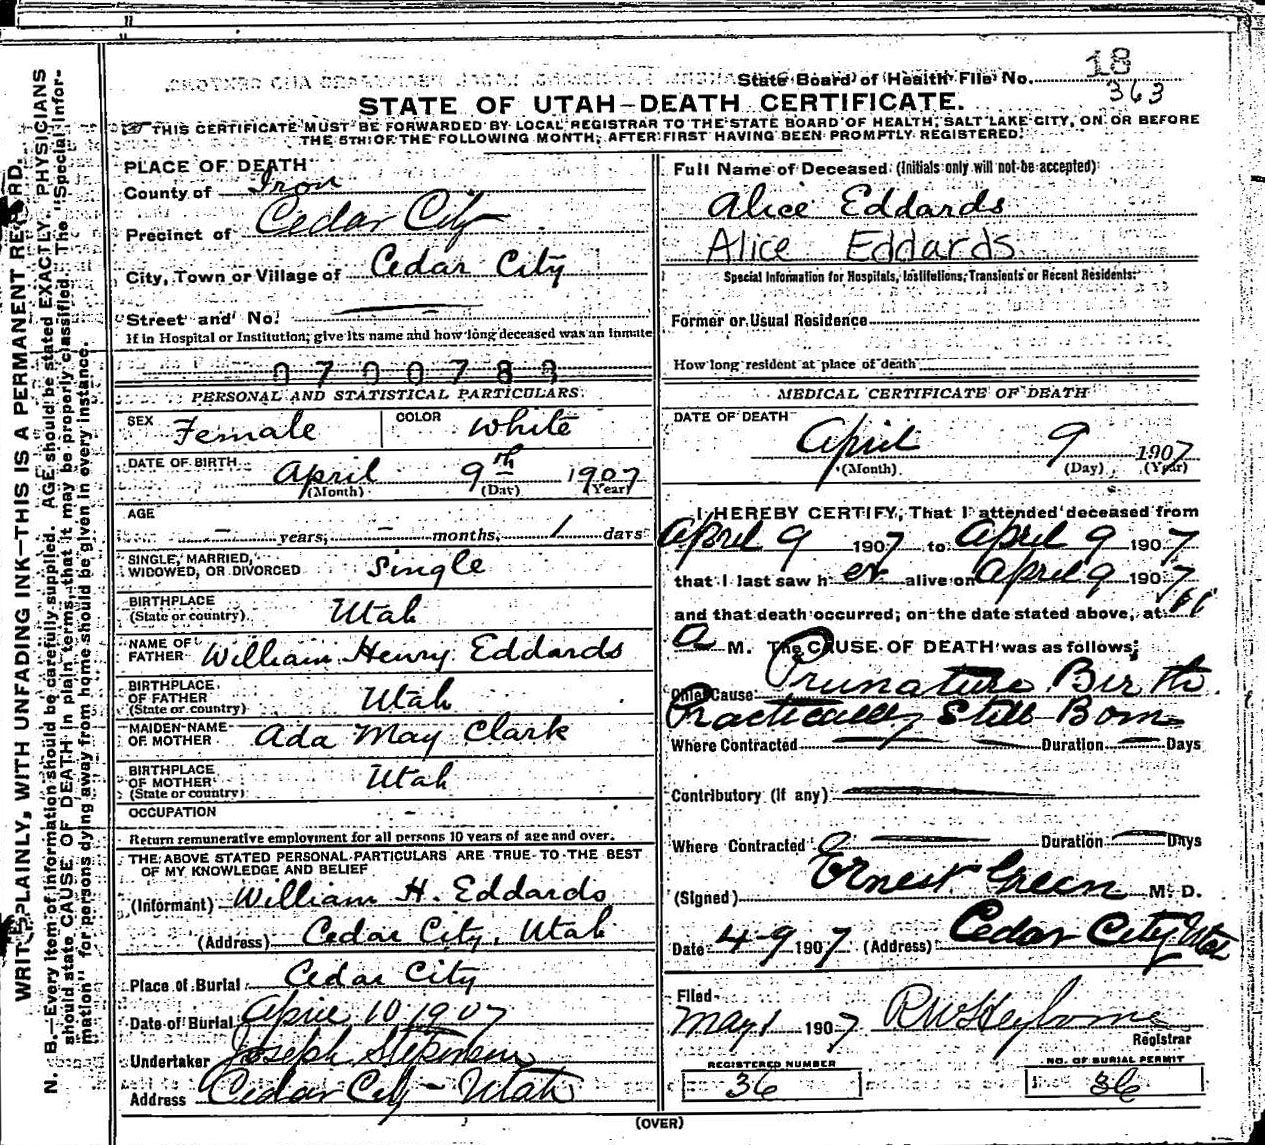 State Board of Health File No. 18
363
STATE OF UTAH—DEATH CERTIFICATE.
THIS CERTIFICATE MUST BE FORWARDED BY LOCAL REGISTRAR TO THE STATE BOARD OF HEALTH, SALT LAKE CITY, ON OR BEFORE
THE 5TH OF THE FOLLOWING MONTH, AFTER FIRST HAVING BEEN PROMPTLY REGISTERED.
WRITE PLAINLY, WITH UNFADING INK—THIS IS A PERMANENT RECORD.
N. B.—Every item of information should be carefully supplied. AGE should be stated EXACTLY. PHYSICIANS
should state CAUSE OF DEATH in plain terms, that it may be properly classified. The "Special Infor-
mation" for persons dying away from home should be given in every instance.
PLACE OF DEATH
County of Iron
Precinct of Cedar City
City, Town or Village of Cedar City
Street and No.
If in Hospital or Institution, give its name and how long deceased was an inmate
PERSONAL AND STATISTICAL PARTICULARS.
SEX Female COLOR White
DATE OF BIRTH April 9th 1907
(Month) (Day) (Year)
AGE
– years, – months, 1 days
SINGLE, MARRIED,
WIDOWED, OR DIVORCED Single
BIRTHPLACE
(State or country) Utah
NAME OF
FATHER William Henry Eddards
BIRTHPLACE
OF FATHER
(State or country) Utah
MAIDEN NAME
OF MOTHER Ada May Clark
BIRTHPLACE
OF MOTHER
(State or country) Utah
OCCUPATION –
Return remunerative employment for all persons 10 years of age and over.
THE ABOVE STATED PERSONAL PARTICULARS ARE TRUE TO THE BEST
OF MY KNOWLEDGE AND BELIEF
(Informant) William H. Eddards
(Address) Cedar City, Utah
Place of Burial Cedar City
Date of Burial April 10 1907
Undertaker Joseph
Address Cedar City – Utah
Full Name of Deceased (Initials only will not be accepted)
Alice Eddards
Alice Eddards
Special Information for Hospitals, Institutions, Transients or Recent Residents.
Former or Usual Residence
How long resident at place of death
MEDICAL CERTIFICATE OF DEATH
DATE OF DEATH
April 9 1907
(Month) (Day) (Year)
I HEREBY CERTIFY, That I attended deceased from
April 9 1907 to April 9 1907
that I last saw her alive on April 9 1907
and that death occurred, on the date stated above, at 11
A M. The CAUSE OF DEATH was as follows:
Chief Cause Prunature Birth
Practically Still Born
Where Contracted Duration Days
Contributory (if any)
Where Contracted Duration Days
(Signed) Ernest Green M. D.
Date 4-9 1907 (Address) Cedar City Utah
Filed
May 1 1907
Registrar
REGISTERED NUMBER
36
NO. OF BURIAL PERMIT
36
(OVER)